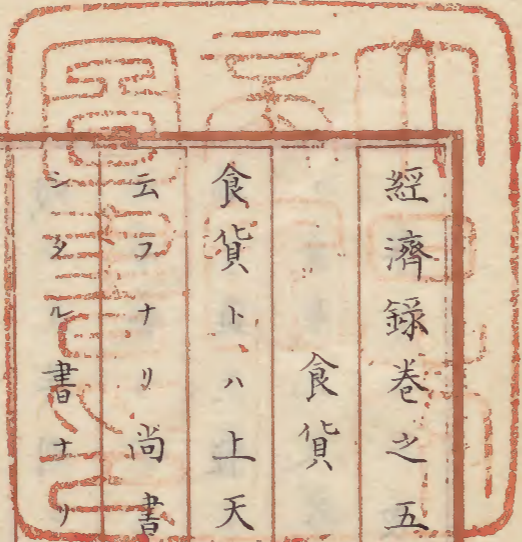 經濟錄卷之五
食貨
食貨トハ上天
云フナリ尚書
シタル書ナリ